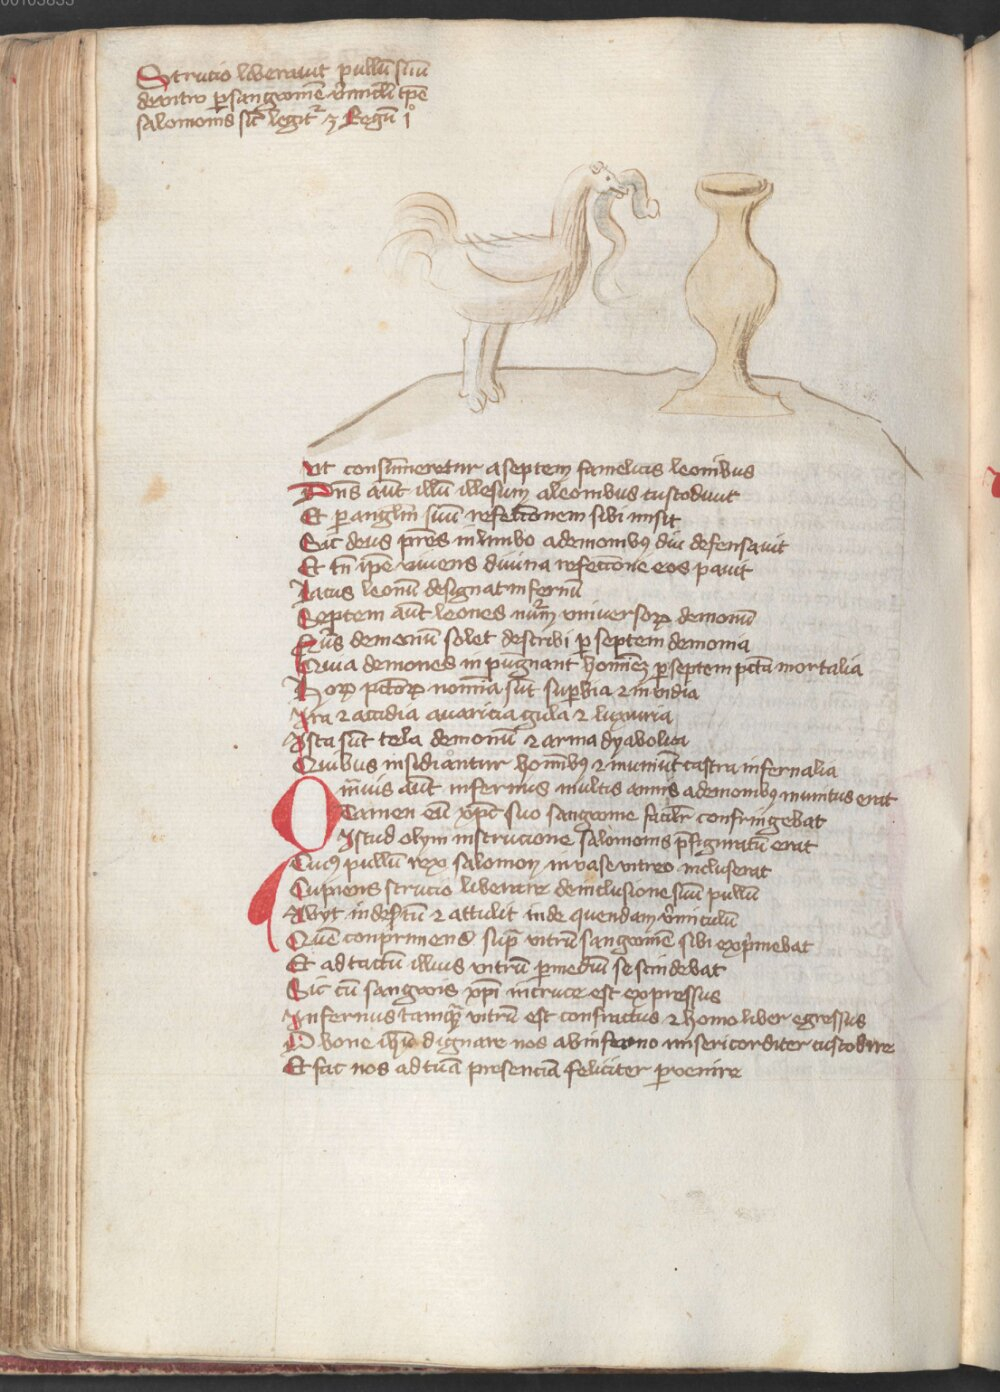 Strucio liberauit pullū suū
de vitro p sangwinē v̾miculi tp̄e
salomonis sic̄ legit᷑ 3 Regū i°
Vt consūmeretur a septem famelicis leonibus
Dn̄s aūt illū illesum a leonibus custodiuit
Et p anglm̄ suū refectionem sibi misit
Sic deus pr̄es in limbo a demonibꝰ diu defensauit
Et tn̄ ip̄e viuens diuina refectione eos pauit
Lacus leonū designat infernū
Septem aūt leones nūm vniuersoꝝ demonū
demoniū solet describi p septem demonia
Quia demones inpugnant homīes p septem pctā mortalia
Hoꝝ pctoꝝ nomīa sūt supbia ⁊ inuidia
Ira ⁊ accidia auaricia gula ⁊ luxuria
Ista sūt tela demonū ⁊ arma dyabolica
Quibus insidiantur homībꝰ ⁊ muniūt castra infernalia
Qm̄uis aūt infernus multis annis a demonibꝰ munitus erat
Tamen eū xp̄c suo sangwine facilr̄ confringebat
Istud olym in strucione salomonis p̄figuratū erat
Cuiꝰ pullū rex salomon in vase vitreo incluserat
Cupiens strucio liberare de inclusione suū pullū
Iuyt in des̄tū ⁊ attulit inde quendam v̾miculū
Quē conprimens sup̄ vitrū sangwinē sibi exp̾mebat
Et ad tactū illius vitrū p mediū se scindebat
Sic cū sangwis xp̄i in cruce est expressus
Infernus tamq̄ vitrū est confractus ⁊ homo liber egressus
O bone ih̄u dignare nos ab inferno misericorditer custodire
Et fac nos ad tuā presenciā feliciter puenire